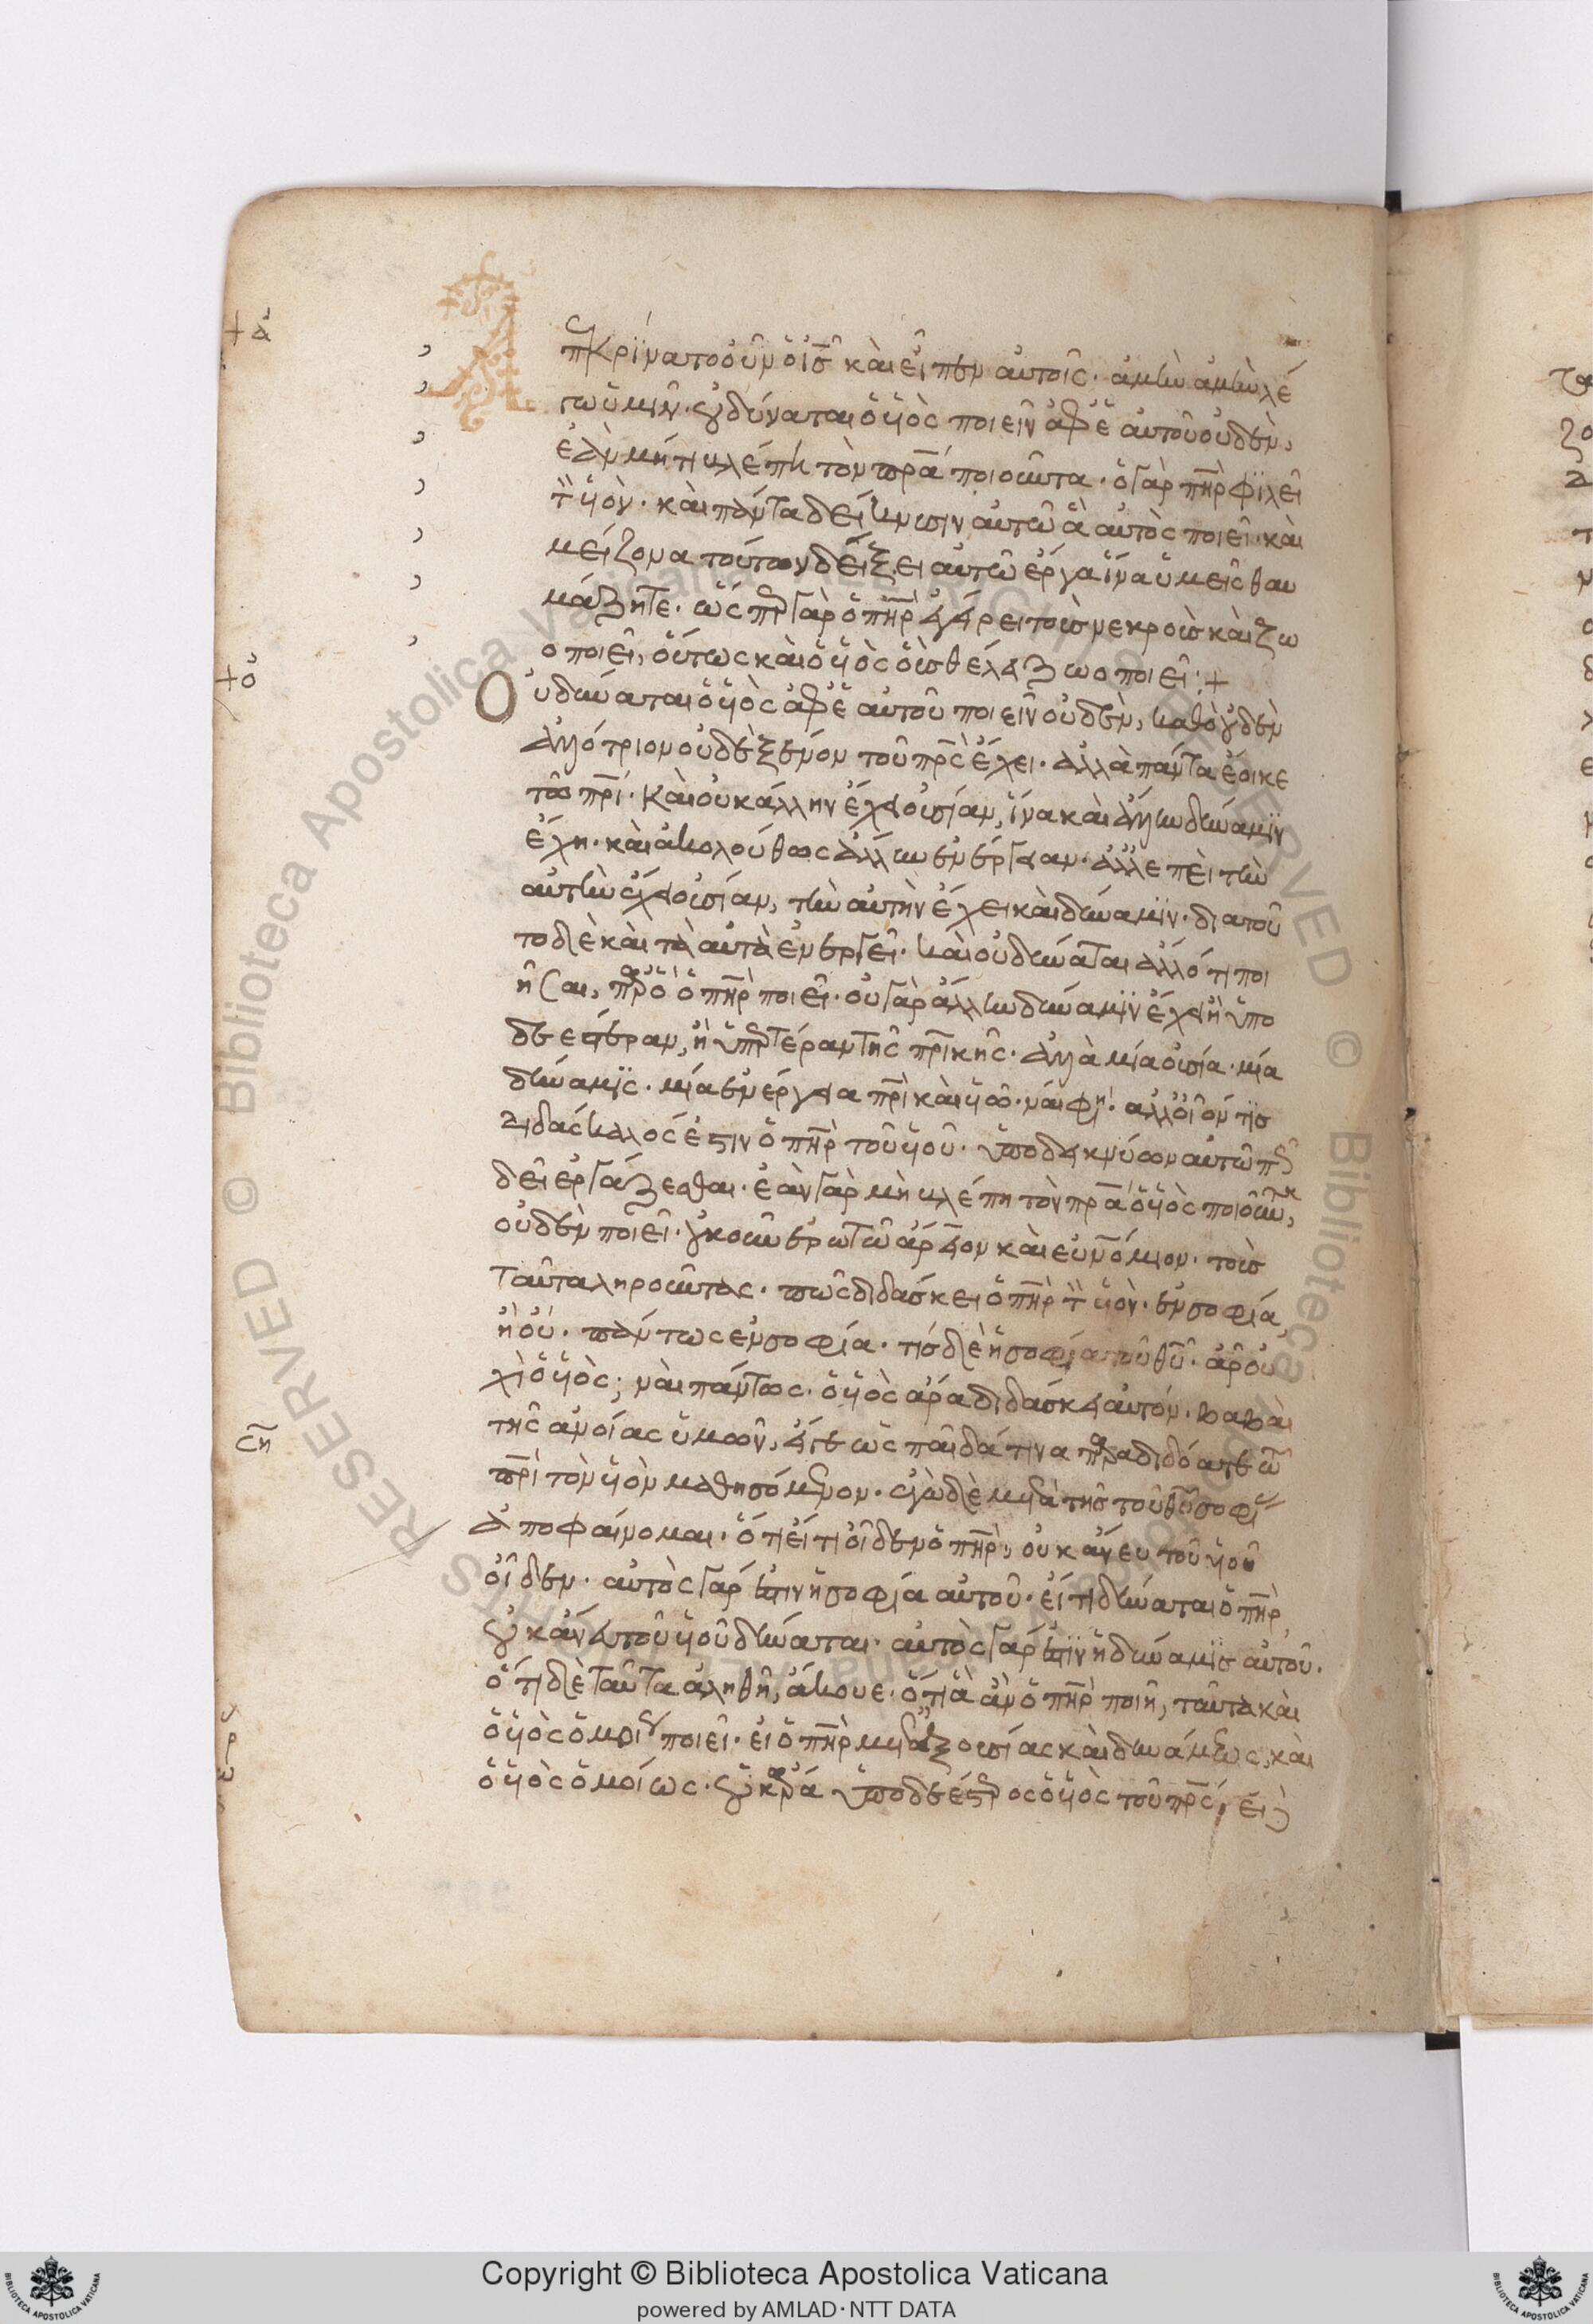 Ἀπεκρίνατο οὖν ὁ ἰς̅ καὶ εἶπεν αὐτοῖς· ἀμὴν ἀμὴν λέ
γω ὑμῖν· οὐ δύναται ὁ υἱὸς ποιεῖν ἀφ' ἑαυτοῦ οὐδὲν,
ἐὰν μή τι βλέπη τὸν πρ̅α ποιοῦντα· ὁ γὰρ πη̅ρ φιλεῖ
τὸν υἱὸν· καὶ πάντα δείκνυσιν αὐτῶ ἃ αὐτὸς ποιεῖ· καὶ
μείζονα τούτων δείξει αὐτῶ ἔργα ἵνα ὑμεῖς θαυ
μάζητε· ὥσπερ γὰρ ὁ πη̅ρ ἐγείρει τοὺς νεκροὺς καὶ ζω
οποιεῖ, οὕτως καὶ ὁ υἱὸς οὓς θέλει ζωοποιεῖ:+
Οὐ δύναται ὁ υἱὸς ἀφ' ἑαυτοῦ ποιεῖν οὐδὲν, καθὸ οὐδὲν
ἀλλότριον οὐδὲ ξένον τοῦ πρ̅ς ἔχει· ἀλλὰ πάντα ἔοικε
τῶ πρ̅ι· καὶ οὐκ ἄλλην ἔχει οὐσίαν, ἵνα καὶ ἄλλην δύναμιν
ἔχη· καὶ ἀκολούθως ἄλλην ἐνέργειαν· ἀλλ' ἐπεὶ τὴν
αὐτὴν ἔχει οὐσίαν, τὴν αὐτὴν ἔχει καὶ δύναμιν· διατοῦ
το δὲ καὶ τὰ αὐτὰ ἐνεργεῖ· καὶ οὐ δύναται ἄλλό τι ποι
ῆσαι, παρ' ὃ ὁ πη̅ρ ποιεῖ· οὐ γὰρ ἄλλην δύναμιν ἔχει ἢ ὑπο
δεεστέραν, ἢ ὑπερτέραν τῆς πρ̅ικῆς· ἀλλὰ μία οὐσία· μία
δύναμις· μία ἐνέργεια πρ̅ι καὶ υἱῶ· ναί φη· ἀλλ' οἷόν τις
διδάσκαλός ἐστιν ὁ πη̅ρ τοῦ υἱοῦ· ὑποδεικνύων αὐτῶ πῶς
δεῖ ἐργάζεσθαι· ἐὰν γὰρ μὴ βλέπη τὸν πρ̅α ὁ υἱὸς ποιοῦντα,
οὐδὲν ποιεῖ· οὐκοῦν ἐρωτῶ ἄρειον καὶ εὐνόμιον· τοὺς
ταῦτα ληροῦντας· πῶς διδάσκει ὁ πη̅ρ τὸν υἱὸν· ἐν σοφία
ἢ οὔ· πάντως ἐν σοφία· τίς δὲ ἡ σοφία τοῦ θυ̅· ἆρ' οὐ
χὶ ὁ υἱὸς; ναὶ πάντως· ὁ υἱὸς ἄρα διδάσκει αὐτόν· βαβαὶ
τῆς ἀνοίας ὑμῶν, εἴγε ὡς παῖδά τινα παραδιδόατε τῶ
πρ̅ι τὸν υἱὸν μαθησόμενον· ἐγὼ δὲ μετὰ τῆς τοῦ θυ̅ σοφί
ἀποφαίνομαι· ὅτι εἴ τι οἶδεν ὁ πη̅ρ, οὐκ ἄνευ τοῦ υἱοῦ
οἶδεν· αὐτὸς γάρ ἐστιν ἡ σοφία αὐτοῦ· εἴ τι δύναται ὁ πη̅ρ
οὐκ ἄνευ τοῦ υἱοῦ δύναται· αὐτὸς γάρ ἐστιν ἡ δύναμις αὐτοῦ·
ὅτι δὲ ταῦτα ἀληθῆ, ἄκουε· ὅτι ἃ ἂν ὁ πη̅ρ ποιῆ, ταῦτα καὶ
ὁ υἱὸς ὁμοίως ποιεῖ· εἰ ὁ πη̅ρ μετ' ἐξουσίας καὶ δυνάμεως, καὶ
ὁ υἱὸς ὁμοίως· οὐκ ἄρα ὑποδεέστερος ὁ υἱὸς τοῦ πρ̅ς, εἰ
Copyright © Biblioteca Apostolica Vaticana
powered by AMLAD·NTT DATA